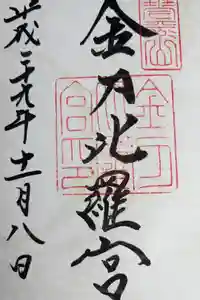 金刀比羅宮
平成二十九年十一月八日
金刀
比羅
宮印